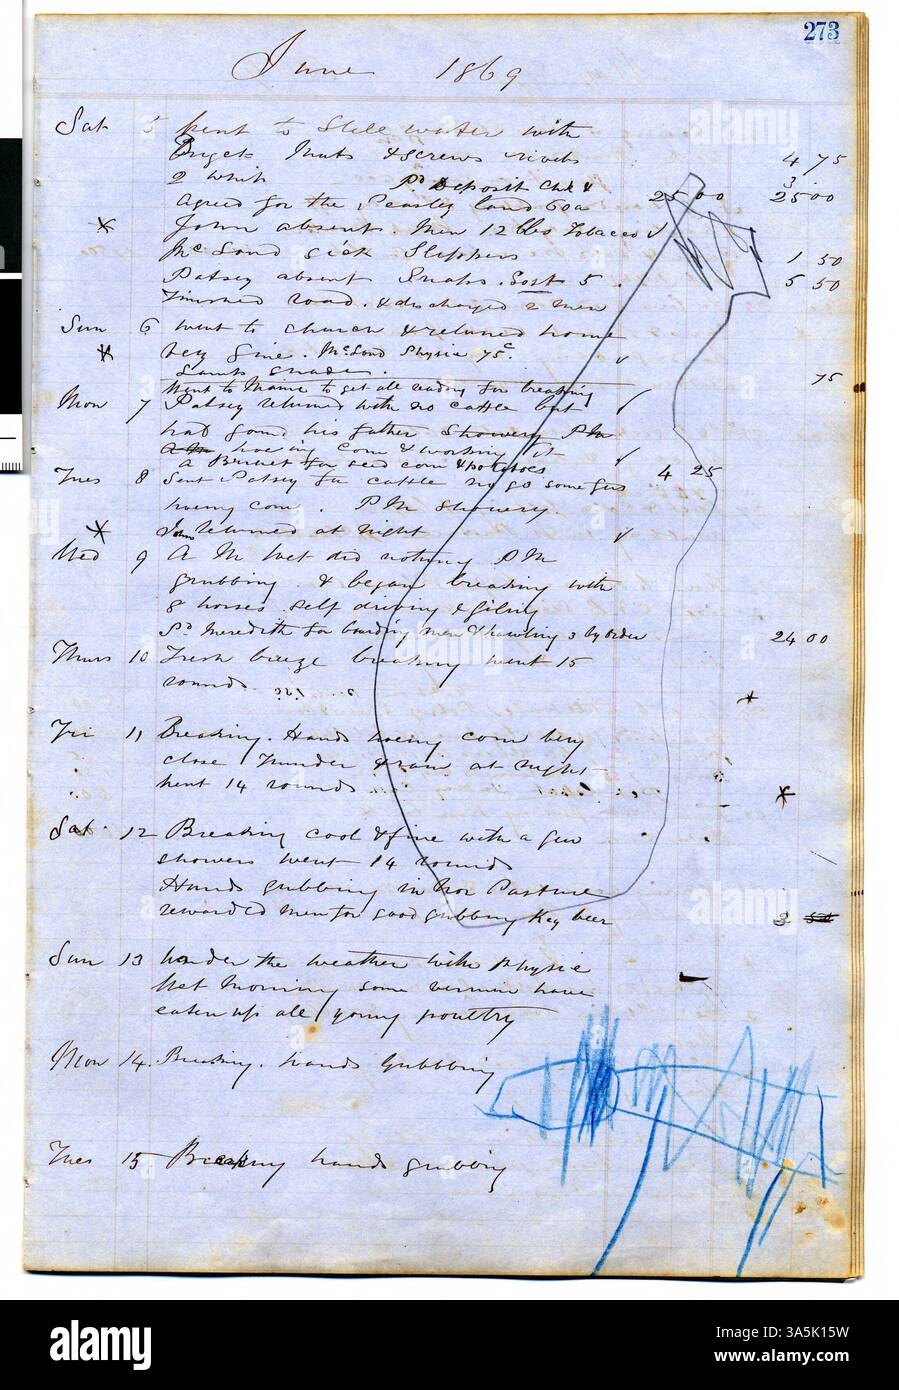 273
June 1869
Sat 5 went to Still water with
Buget Nuts & screws rivets 4 75
2 whit Pd Deposit Chk & 3
agreed for the Peasley land 60a 2500 2500
* John absent Men 12 lbs Tobacco √
McLoud sick Slippers 1 50
Patsey absent Snaps. Sost 5. 5 50
Finished road. & discharged 2 men
Sun 6 went to church & returned home
* very fine. McLoud Physic 75c. √
shade. 75
Went to Maine to get all ready for breaking
Mon 7 Patsey returned with no cattle but √
had found his father Showery PM
hoeing Corn & working it √
a Bushel for seed corn & potatoes 4 25
Tues 8 Sent Patsey for cattle no go some
hoeing corn. P M showery.
* John returned at night √
Wed 9 A M wet did nothing P M
grubbing. & began breaking with
8 horses self driving &
Pd Meredith for boarding men & hawling 3 by order 24 00
Thurs 10 Fresh breeze breaking went 15
rounds
*
Fri 11 Breaking. Hands hoeing corn very
close Thunder & rain at night
went 14 rounds
*
Sat 12 Breaking cool & fine with a few
showers went 14 rounds
Hands grubbing in hor Pasture
rewarded men for good grubbing Keg beer 3
Sun 13 under the weather with physic
Wet Morning some vermin have
eaten up all young poultry
Mon 14. Breaking. hands Grubbing
Tues 15 Breaking hands grubbing
alamy
Image ID: 3A5K15W
www.alamy.com